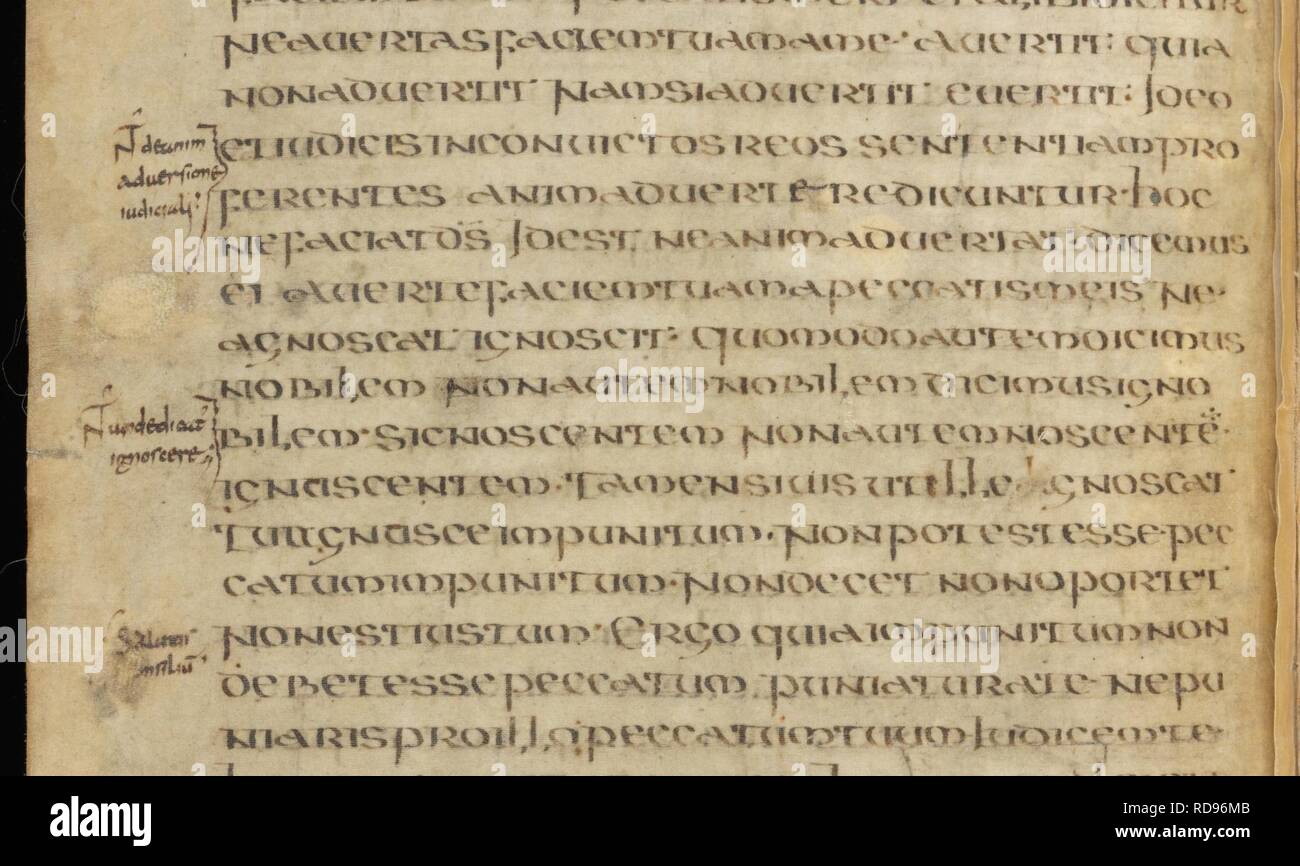 NEAVERTASFACIEMTUAMAME· AVERTIT· QUIA
NONADVERTIT· NAMSIADVERTIT EVERTIT· IDEO
ETIUDICISINCONVICTOSREOS SENTENTIAMPRO
FERENTES ANIMADVERTEREDICUNTUR· HOC
NEFACIATDS̄ IDEST NEANIMADVERTAT· DICEMUS
EI AVERTEFACIEMTUAMAPECCATISMEIS NE·
AGNOSCAT IGNOSCIT· QUOMODOAUTEMDICIMUS
NOBILEM NONAUTEMNOBILEM DICIMUSIGNO
BILEM· SICNOSCENTEM NONAUTEMNOSCENTĒ·
IGNUSCENTEM· TAMENSIVISUTILLE IGNOSCAT
TUIGNUSCEIMPUNITUM· NONPOTESTESSE·PEC
CATUMIMPUNITUM· NONDECET NONOPORTET
NONESTIUSTUM· ERGO QUIAIMPUNITUMNON
DEBETESSEPECCATUM PUNIATURATE· NEPU
NIARISPROILLO· PECCATUMTUUM IUDICEMTE·
N̄ de anim
adversione
iudiciali
ignoscere
alamy
Image ID: RD96MB
www.alamy.com